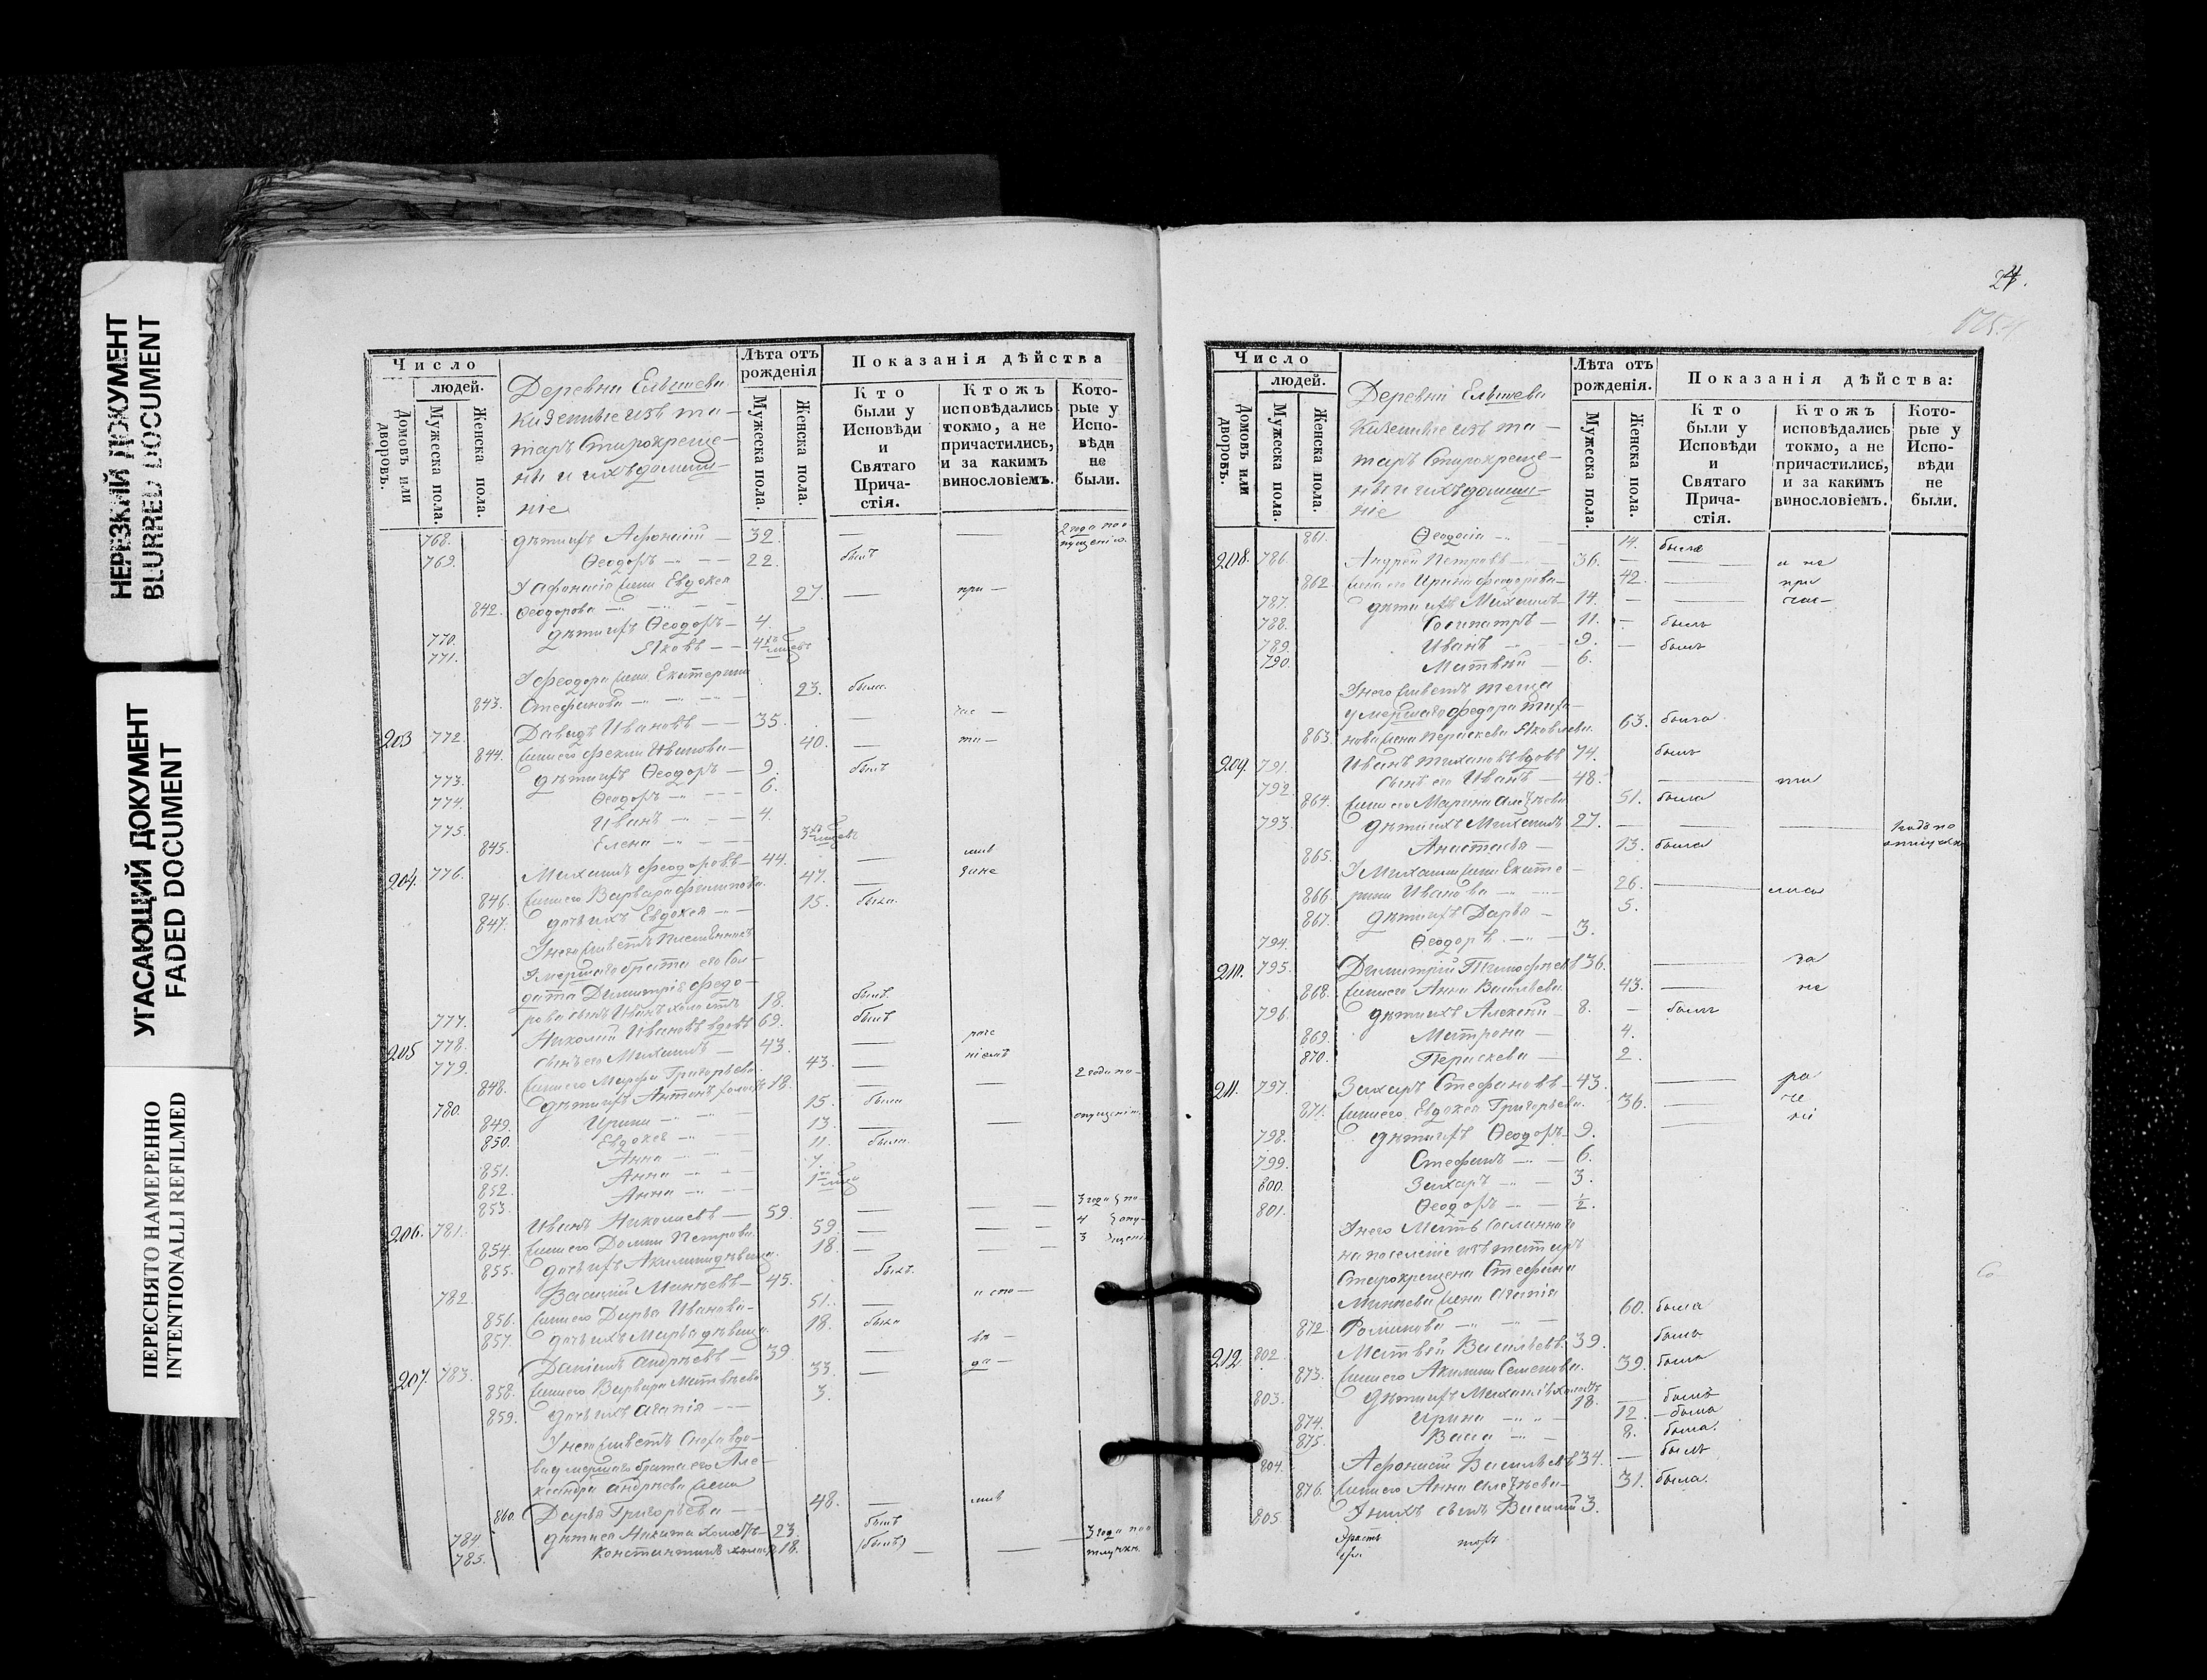 НЕРЕЗКИЙ ДОКУМЕНТ
BLURRED DOCUMENT
УГАСАЮЩИЙ ДОКУМЕНТ
FADED DOCUMENT
ПЕРЕСНЯТО НАМЕРЕННО
INTENTIONALLI REFILMED
Число
людей.
Домовъ или дворовъ.
Мужеска пола.
Женска пола.
Деревни
казенные изъ та-
таръ Старокреще-
ны и ихъ домаш-
ніе
Лѣта отъ рожденія
Мужеска пола.
Женска пола.
Показанія дѣйства
Кто были у Исповѣди и Святаго Прича-стія.
Ктожъ исповѣдались токмо, а не причастились, и за какимъ винословіемъ.
Кото-рые у Испо-вѣди не были.
768. дѣти ихъ Афонасій — 32. — —
769. Ѳеодоръ — 22. былъ
У Афонасія жена Евдокея
842. Ѳеодорова — 27. — при —
770. дѣти ихъ Ѳеодоръ — 4.
771. Яковъ — 4
У Феодора жена Екатерина
843. Стефанова — 23. была.
203 772. Давыдъ Ивановъ — 35. — час —
844. жена его Фекла Иванова — 40. — та —
773. дѣти ихъ Ѳеодоръ — 9. былъ
774. Ѳеодоръ — 6.
775. Иванъ — 4.
845. Елена — 3
204. 776. Михаилъ Феодоровъ — 44. —
846. жена его Варвара Филипова. 47. —
847. дочь ихъ Евдокея — 15. была.
У него живетъ племянникъ
умершаго брата его Сол-
дата Димитрія Федо-
777. рова сынъ Иванъ холостъ 18. былъ.
205 778. Николай Ивановъ вдовъ 69. былъ
779. сынъ его Михаилъ — 43. —
848. жена его Марфа Григорьева. 43. —
780. дѣти ихъ Антонъ холостъ 18. — — 2 года по
849. Ирина — 15. была
850. Евдокея — 13. —
851. Анна — 11. была.
852. Анна — 7.
853. Анна — 1
206. 781. Иванъ Николаевъ — 59. — — 3 года по
854. жена его Домна Петрова. 59. — — 4
855. дочь ихъ Акилина дѣвица. 18. — — 3
782. Василій — 45. былъ.
856. жена его Дарья Иванова — 51. —
857. дочь ихъ Марья дѣвица. 18. была
207. 783. Даніилъ Андреевъ — 39 —
858. жена его Варвара Матвѣева 33. — да —
859. дочь ихъ Агапія — 3.
У него живетъ сноха вдо-
ва умершаго брата его Але-
ксандра Андреева жена
860. Дарья Григорьева — 48. —
784. дѣти ея Никита холостъ — 23. былъ
785. Константинъ холостъ 18. (былъ) — — 3 года
24.
Число
людей.
Домовъ или дворовъ.
Мужеска пола.
Женска пола.
Деревни
казенные изъ та-
таръ Старокреще-
ны и ихъ домаш-
ніе
Лѣта отъ рожденія.
Мужеска пола.
Женска пола.
Показанія дѣйства:
Кто были у Исповѣди и Святаго Прича-стія.
Ктожъ исповѣдались токмо, а не причастились, и за какимъ винословіемъ.
Кото-рые у Испо-вѣди не были.
861. Ѳеодосія — 14. была
208. 786. Андрей Петровъ — 36. — а не
862 жена его Ирина Феодорова — 42. — при
787. дѣти ихъ Михаилъ — 14. — час-
788. Сосипатръ — 11. былъ
789. Иванъ — 9. былъ
790. Матвѣй — 6.
У него живетъ теща
умершаго Федора Тиха-
863. нова жена Параскева Яковлева. 63. была
209. 791. Иванъ Тихановъ вдовъ 74. былъ
792. сынъ его Иванъ — 48. — ти
864. жена его Марина 51. была
793. дѣти ихъ Михаилъ 27. — —
865. Анастасья — 13. была
У Михаила жена Екате-
866. рина Иванова — 26. —
867. дѣти ихъ Дарья — 5.
794. Ѳеодоръ — 3.
210. 795. Димитрій Тимофеевъ 36. — за
868. жена его Анна Васильева. 43. — не
796. дѣти ихъ Алексѣй — 8. — былъ
869. Матрона — 4.
870. Параскева — 2.
211. 797. Захаръ Стефановъ — 43. — ра
871. жена его Евдокея Григорьева. 36. —
798. дѣти ихъ Ѳеодоръ — 9.
799. Стефанъ — 6.
800. Захаръ — 3.
801. Ѳеодоръ — ½.
У него мать сосланнаго
на поселеніе изъ татаръ
Старокрещена Стефана
жена Агапія
872. Романова — 60. была
212. 802. Матвей Васильевъ 39. былъ
873. жена его Акилина Семенова. 39. была
803. дѣти ихъ Михаилъ холостъ 18. — былъ
874. Ирина — 12. — была
875. Васа — 8. была.
804. Афонасій Васильевъ 34. — былъ
876. жена его Анна 31. была.
805. У нихъ сынъ Василій 3.